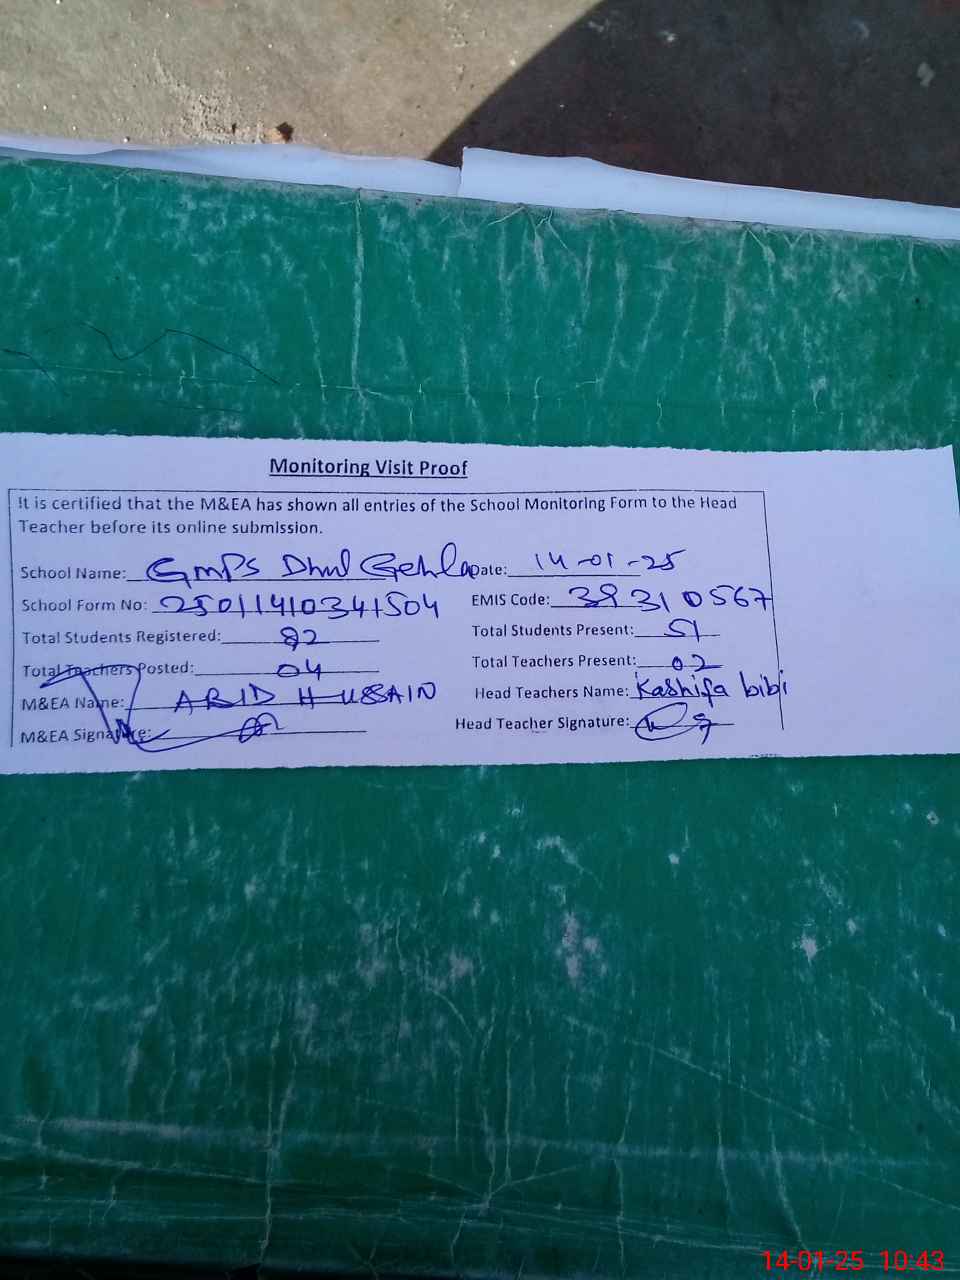 Monitoring Visit Proof
It is certified that the M&EA has shown all entries of the School Monitoring Form to the Head
Teacher before its online submission.
School Name: GMPS Dhul Gehla Date: 14-01-25
School Form No: 25011410341504 EMIS Code: 38310567
Total Students Registered: 82 Total Students Present: 51
Total Teachers Posted: 04 Total Teachers Present: 02
M&EA Name: ABID HUSSAIN Head Teachers Name: Kashifa bibi
M&EA Signature: Head Teacher Signature:
14-01-25 10:43